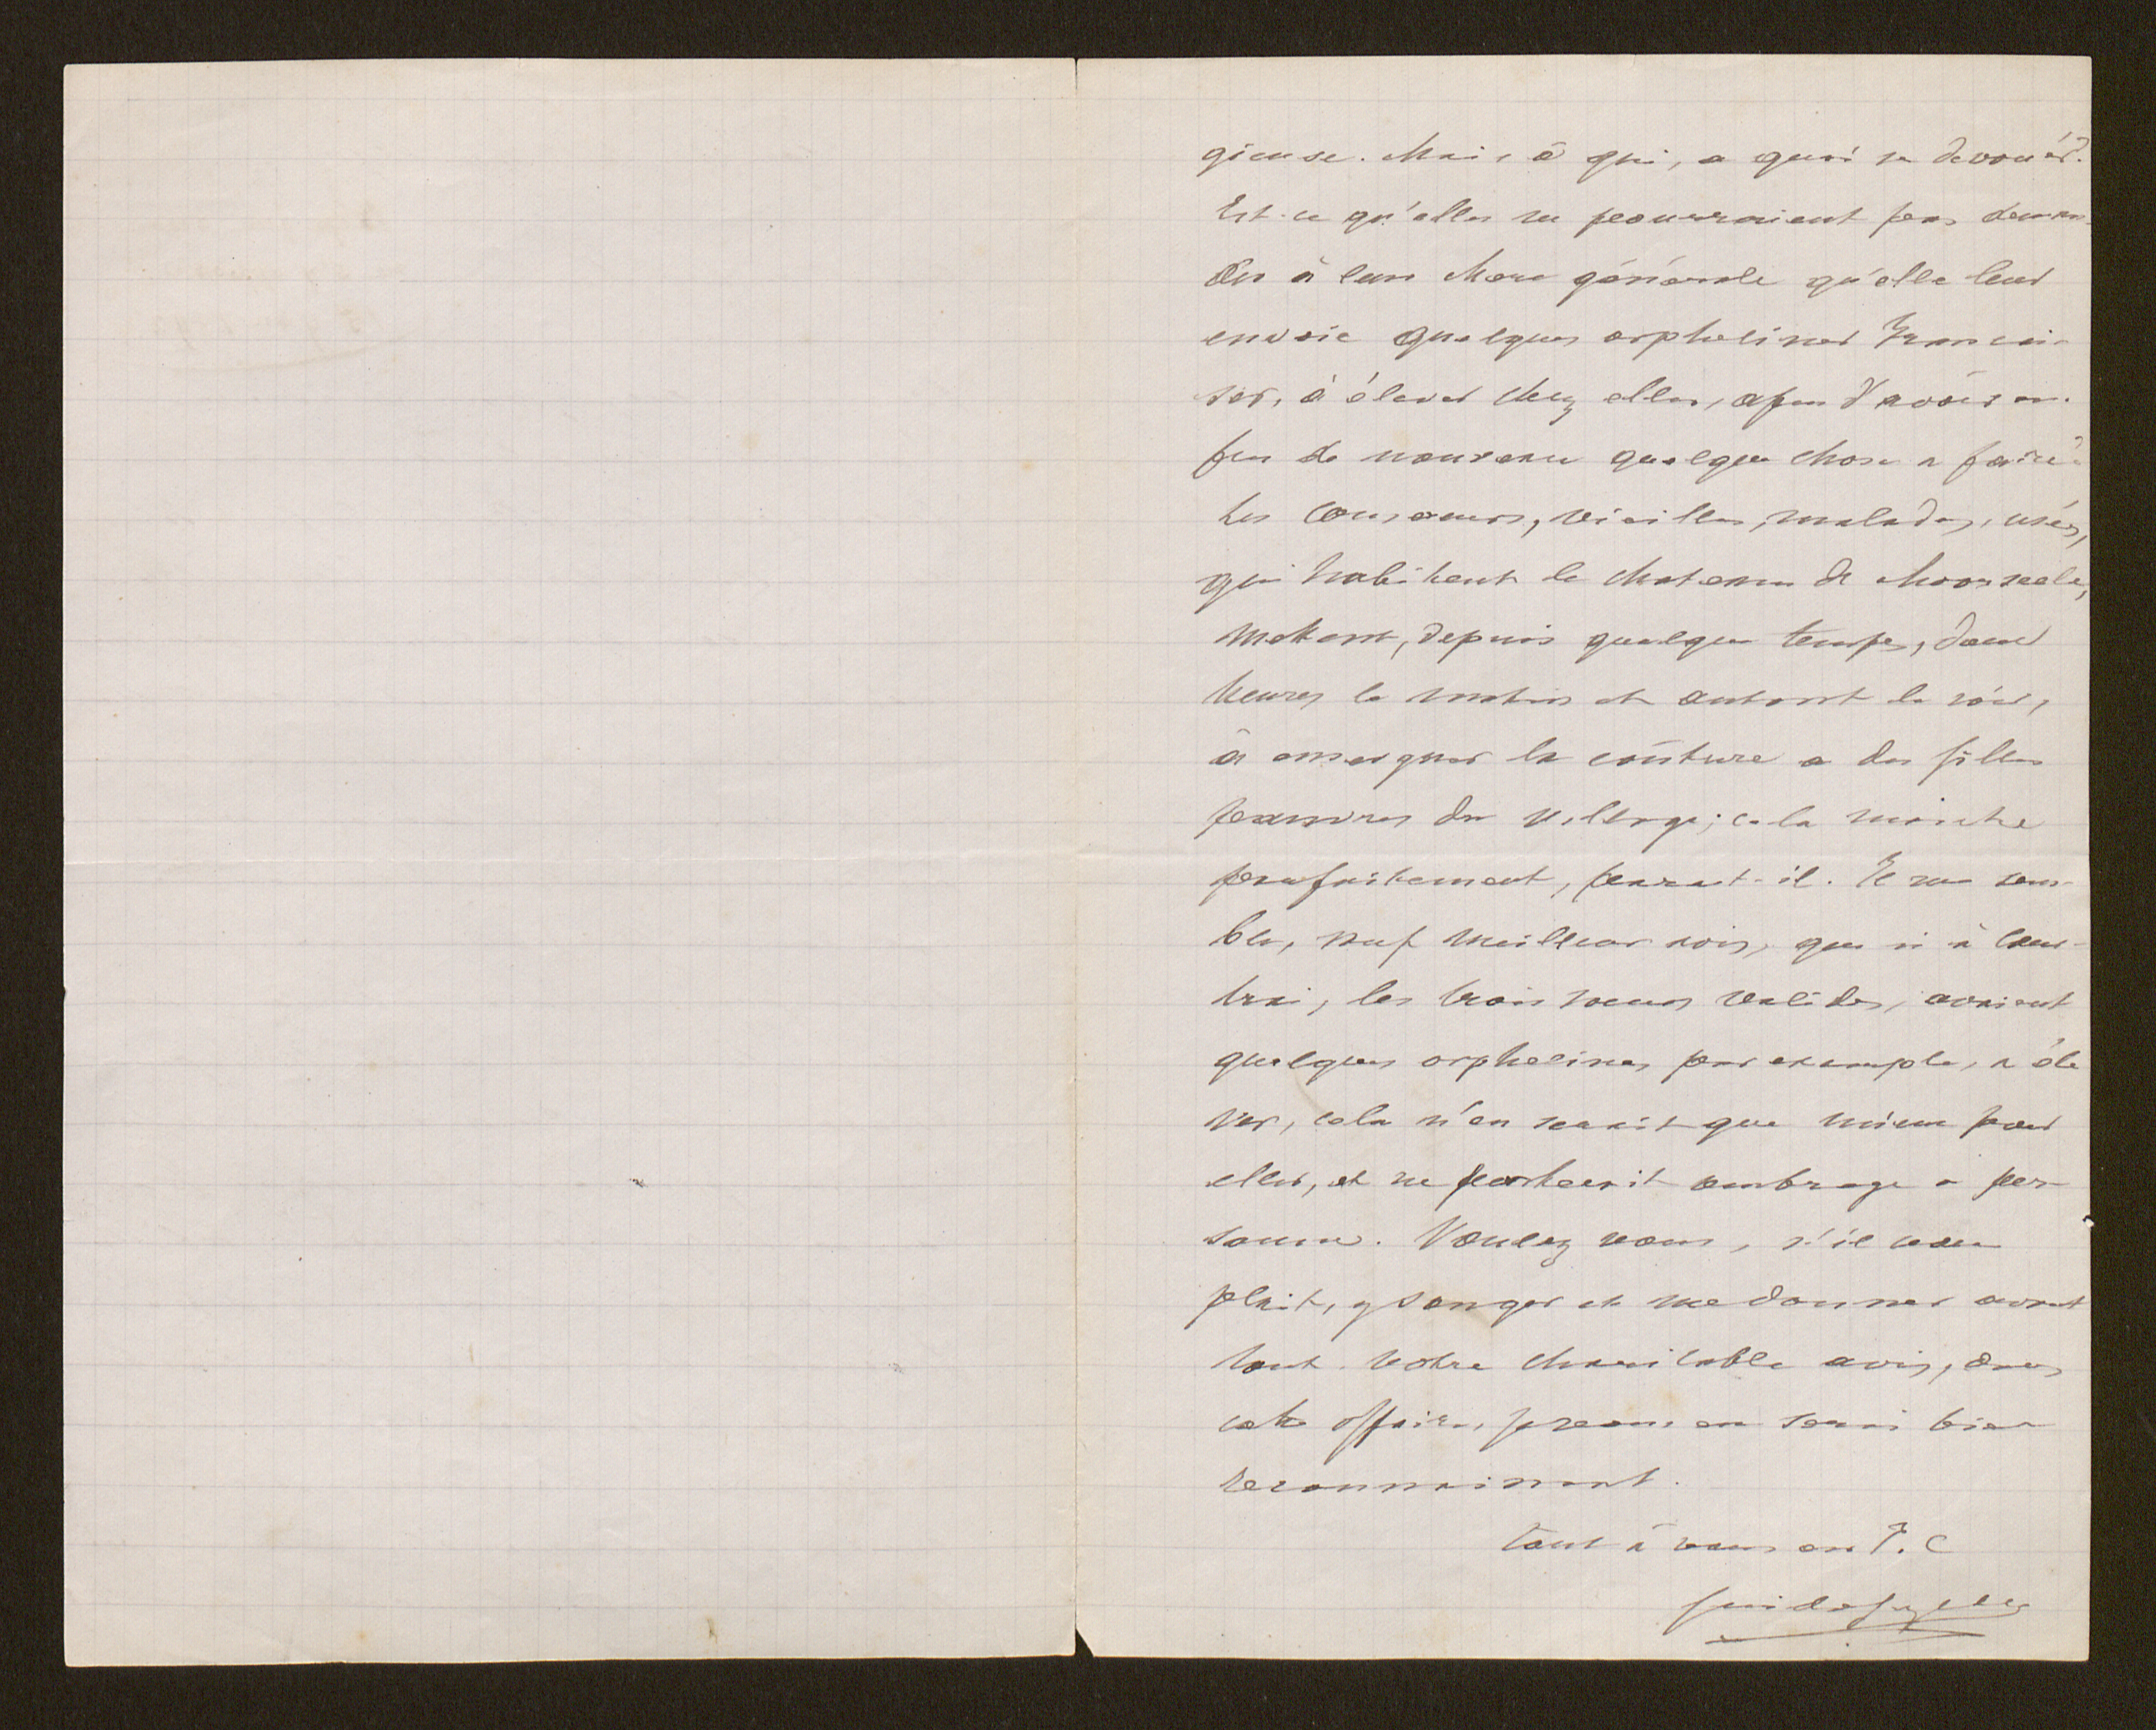 gieuse. Mais à qui, a quoi se devouer?
Est-ce qu'elles ne pourraient pas deman-
der à leur Mere générale qu'elle leur
envoie quelques orphelines françai-
ses, à élever chez elles, afin d'avoir un
peu de nouveau quelque chose a faire?
Les consoeurs, vieilles, malades, usées,
qui habitent le chateau de Moorseele,
mettent, depuis quelque temps, deux
heures le matin et autant le soir,
à enseigner la coûture a des filles
pauvres du village; cela marche
parfaitement, parait-il. Il me sem-
ble, sauf meilleur avis, que si à Cour-
trai, les trois soeurs valides, avaient
quelques orphelines par exemple, a éle
ver, cela n'en serait que mieux pour
elles, et ne porterait ombrage a per-
sonne. Voulez vous, s'il vous
plait, y songer et me donner avant
tout votre charitable avis, dans
cette affaire, je vous en serai bien
reconnaissant.
Tout à vous en J. C
Guido Gezelle